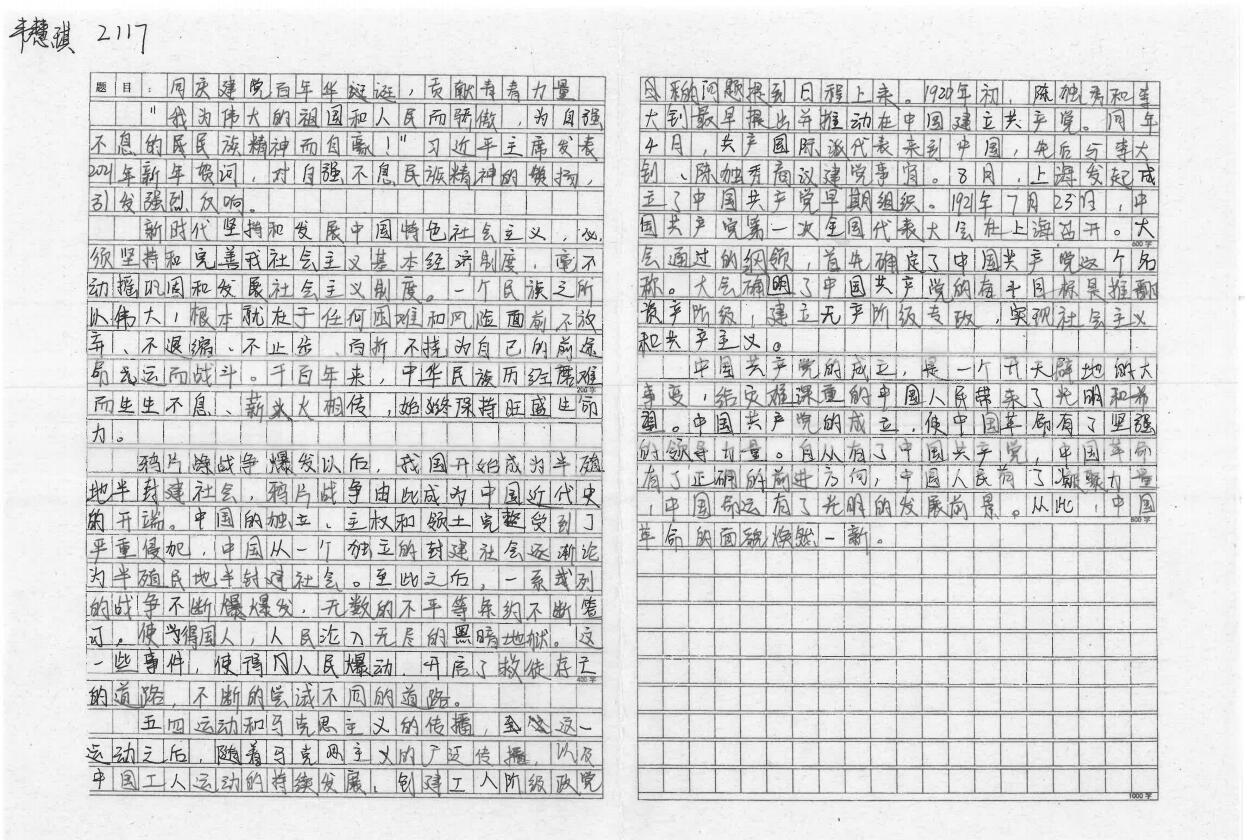 韦慧琪 2117
题目：同庆建党百年华诞，贡献青春力量
"我为伟大的祖国和人民而骄傲，为自强
不息的民民族精神而自豪！"习近平主席发表
2021年新年贺词，对自强不息民族精神的赞扬，
引发强烈反响。
新时代坚持和发展中国特色社会主义，必
须坚持和完善我社会主义基本经济制度，毫不
动摇巩固和发展社会主义制度。一个民族之所
以伟大，根本就在于任何困难和风险面前不放
弃、不退缩、不止步，百折不挠为自己的前途
命运而战斗。千百年来，中华民族历经磨难
而生生不息、薪火相传，始终保持旺盛生命
力。
鸦片战争爆发以后，我国开始成为半殖
地半封建社会，鸦片战争由此成为中国近代史
的开端。中国的独立、主权和领土完整受到了
严重侵犯，中国从一个独立的封建社会逐渐沦
为半殖民地半封建社会。至此之后，一系列
的战争不断爆发，无数的不平等条约不断签
订。使得国人，人民沦入无尽的黑暗地狱。这
一些事件，使得人民爆动，开启了救徒存亡
的道路，不断的尝试不同的道路。
五四运动和马克思主义的传播，这一
运动之后，随着马克思主义的广泛传播，以及
中国工人运动的持续发展，创建工人阶级政党
的问题提到日程上来。1920年初，陈独秀和李
大钊最早提出并推动在中国建立共产党。同年
4月，共产国际派代表来到中国，先后与李大
钊、陈独秀商议建党事宜。8月，上海发起成
立了中国共产党早期组织。1921年7月23日，中
国共产党第一次全国代表大会在上海召开。大
会通过的纲领，首先确定了中国共产党这个名
称。大会确明了中国共产党的奋斗目标是推翻
资产阶级，建立无产阶级专政，实现社会主义
和共产主义。
中国共产党的成立，是一个开天辟地的大
事变，给灾难深重的中国人民带来了光明和希
望。中国共产党的成立，使中国革命有了坚强
的领导力量。自从有了中国共产党，中国革命
有了正确的前进方向，中国人民有了凝聚力量
，中国命运有了光明的发展前景。从此，中国
革命的面貌焕然一新。
200字
400字
600字
800字
1000字